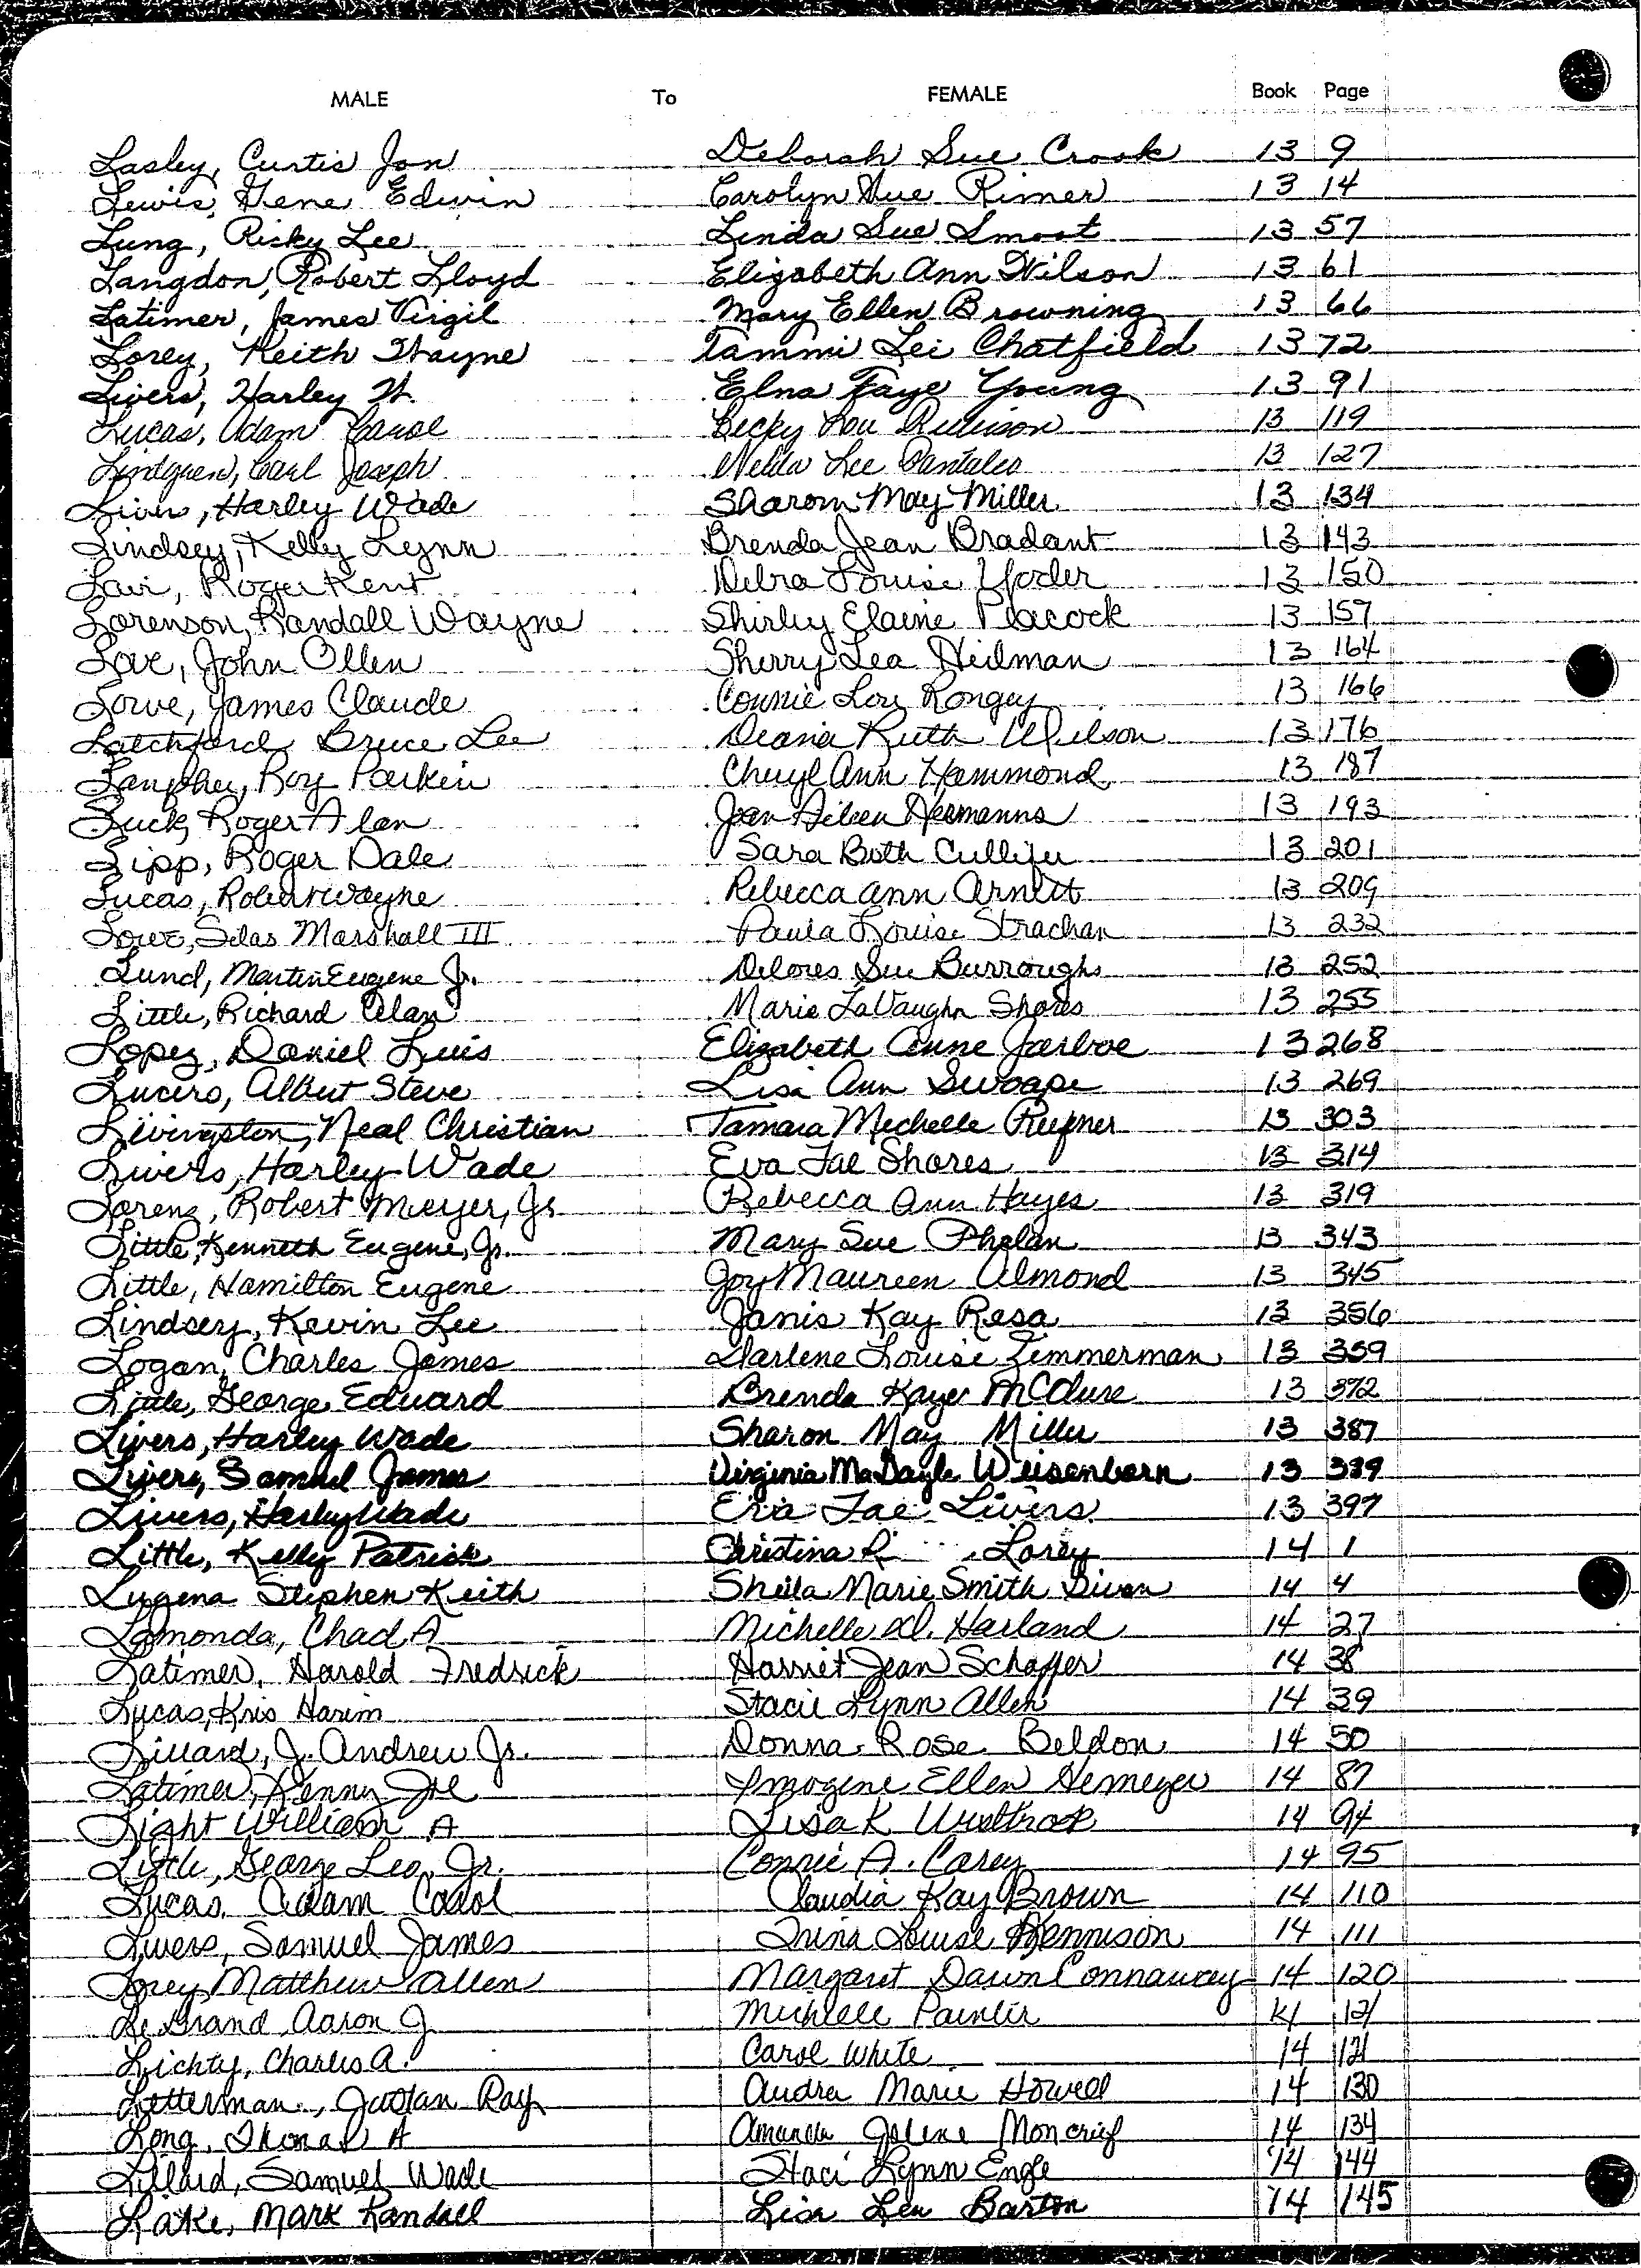 MALE To FEMALE Book Page
Lasley, Curtis Jon Deborah Sue Crook 13 9
Lewis, Gene Edwin Carolyn Sue Rimer 13 14
Lung, Ricky Lee Linda Sue Smoot 13 57
Langdon, Robert Lloyd Elizabeth Ann Wilson 13 61
Latimer, James Virgil Mary Ellen Browning 13 66
Lorey, Keith Wayne Tammi Lei Chatfield 13 72
Livers, Harley W. Elna Faye Young 13 91
Lucas, Adam Carol Becky Lou 13 119
Lindgren, Carl Joseph Nelda Lee Pantaleo 13 127
Harley Wade Sharom May Miller 13 134
Lindsey, Kelly Lynn Brenda Jean Bradant 13 143
Lair, Roger Kent Debra Louise Yoder 13 150
Lorenson, Randall Wayne Shirley Elaine Peacock 13 157
Love, John Ollen Sherry Lea Heilman 13 164
Lowe, James Claude Connie Lou Rongey 13 166
Latchford, Bruce Lee Deana Ruth Wilson 13 176
Lanpher, Roy Parkin Cheryl Ann Hammond 13 187
Luck, Roger Alan Jean Aileen Hermanns 13 193
Lipp, Roger Dale Sara Beth Cullifer 13 201
Lucas, Robert Wayne Rebecca Ann Arnett 13 209
Lowe, Silas Marshall III Paula Louise Strachan 13 232
Lund, Martin Eugene Jr. Delores Sue Burroughs 13 252
Little, Richard Alan Marie LaVaughn Shores 13 255
Lopez, Daniel Luis Elizabeth Anne Jarboe 13 268
Lucero, Albert Steve Lisa Ann Swoape 13 269
Livingston, Neal Christian Tamara Mechelle Rufner 13 303
Livers, Harley Wade Eva Fae Shores 13 314
Lorenz, Robert Meyer, Jr. Rebecca Ann Hayes 13 319
Little, Kenneth Eugene, Jr. Mary Sue Phelan 13 343
Little, Hamilton Eugene Joy Maureen Almond 13 345
Lindsey, Kevin Lee Janis Kay Resa 13 356
Logan, Charles James Darlene Louise Zimmerman 13 359
Little, George Edward Brenda Kaye McClure 13 372
Livers, Harley Wade Sharon May Miller 13 387
Livers, Samuel James Virginia MaDayle Weisenborn 13 389
Livers, Harley Wade Eva Fae Livers 13 397
Little, Kelly Patrick Christina R. Lorey 14 1
Lugena Stephen Keith Sheila Marie Smith Divan 14 4
Lamonda, Chad A Michelle D. Harland 14 27
Latimer, Harold Fredrick Harriet Jean Schaffer 14 38
Lucas, Kris Harim Stacie Lynn Allen 14 39
Lillard, J. Andrew Jr. Donna Rose Beldon 14 50
Latimer, Kenny Joe Imogene Ellen Hemeyer 14 87
Light William A Lisa K 14 94
Little, George Leo, Jr. Connie A. Carey 14 95
Lucas, Adam Carol Claudia Kay Brown 14 110
Livers, Samuel James Trina Louise Kennison 14 111
Lorey, Matthew Allen Margaret Dawn Connaway 14 120
LeGrand, Aaron J Michelle Painter 14 121
Lichty, Charles A. Carol White 14 121
Letterman, Ray Audra Marie Howell 14 130
Long, Thomas A Amanda Jolene Moncrief 14 134
Lillard, Samuel Wade Staci Lynn Engle 14 144
Lake, Mark Randall Lisa Lea Barton 14 145